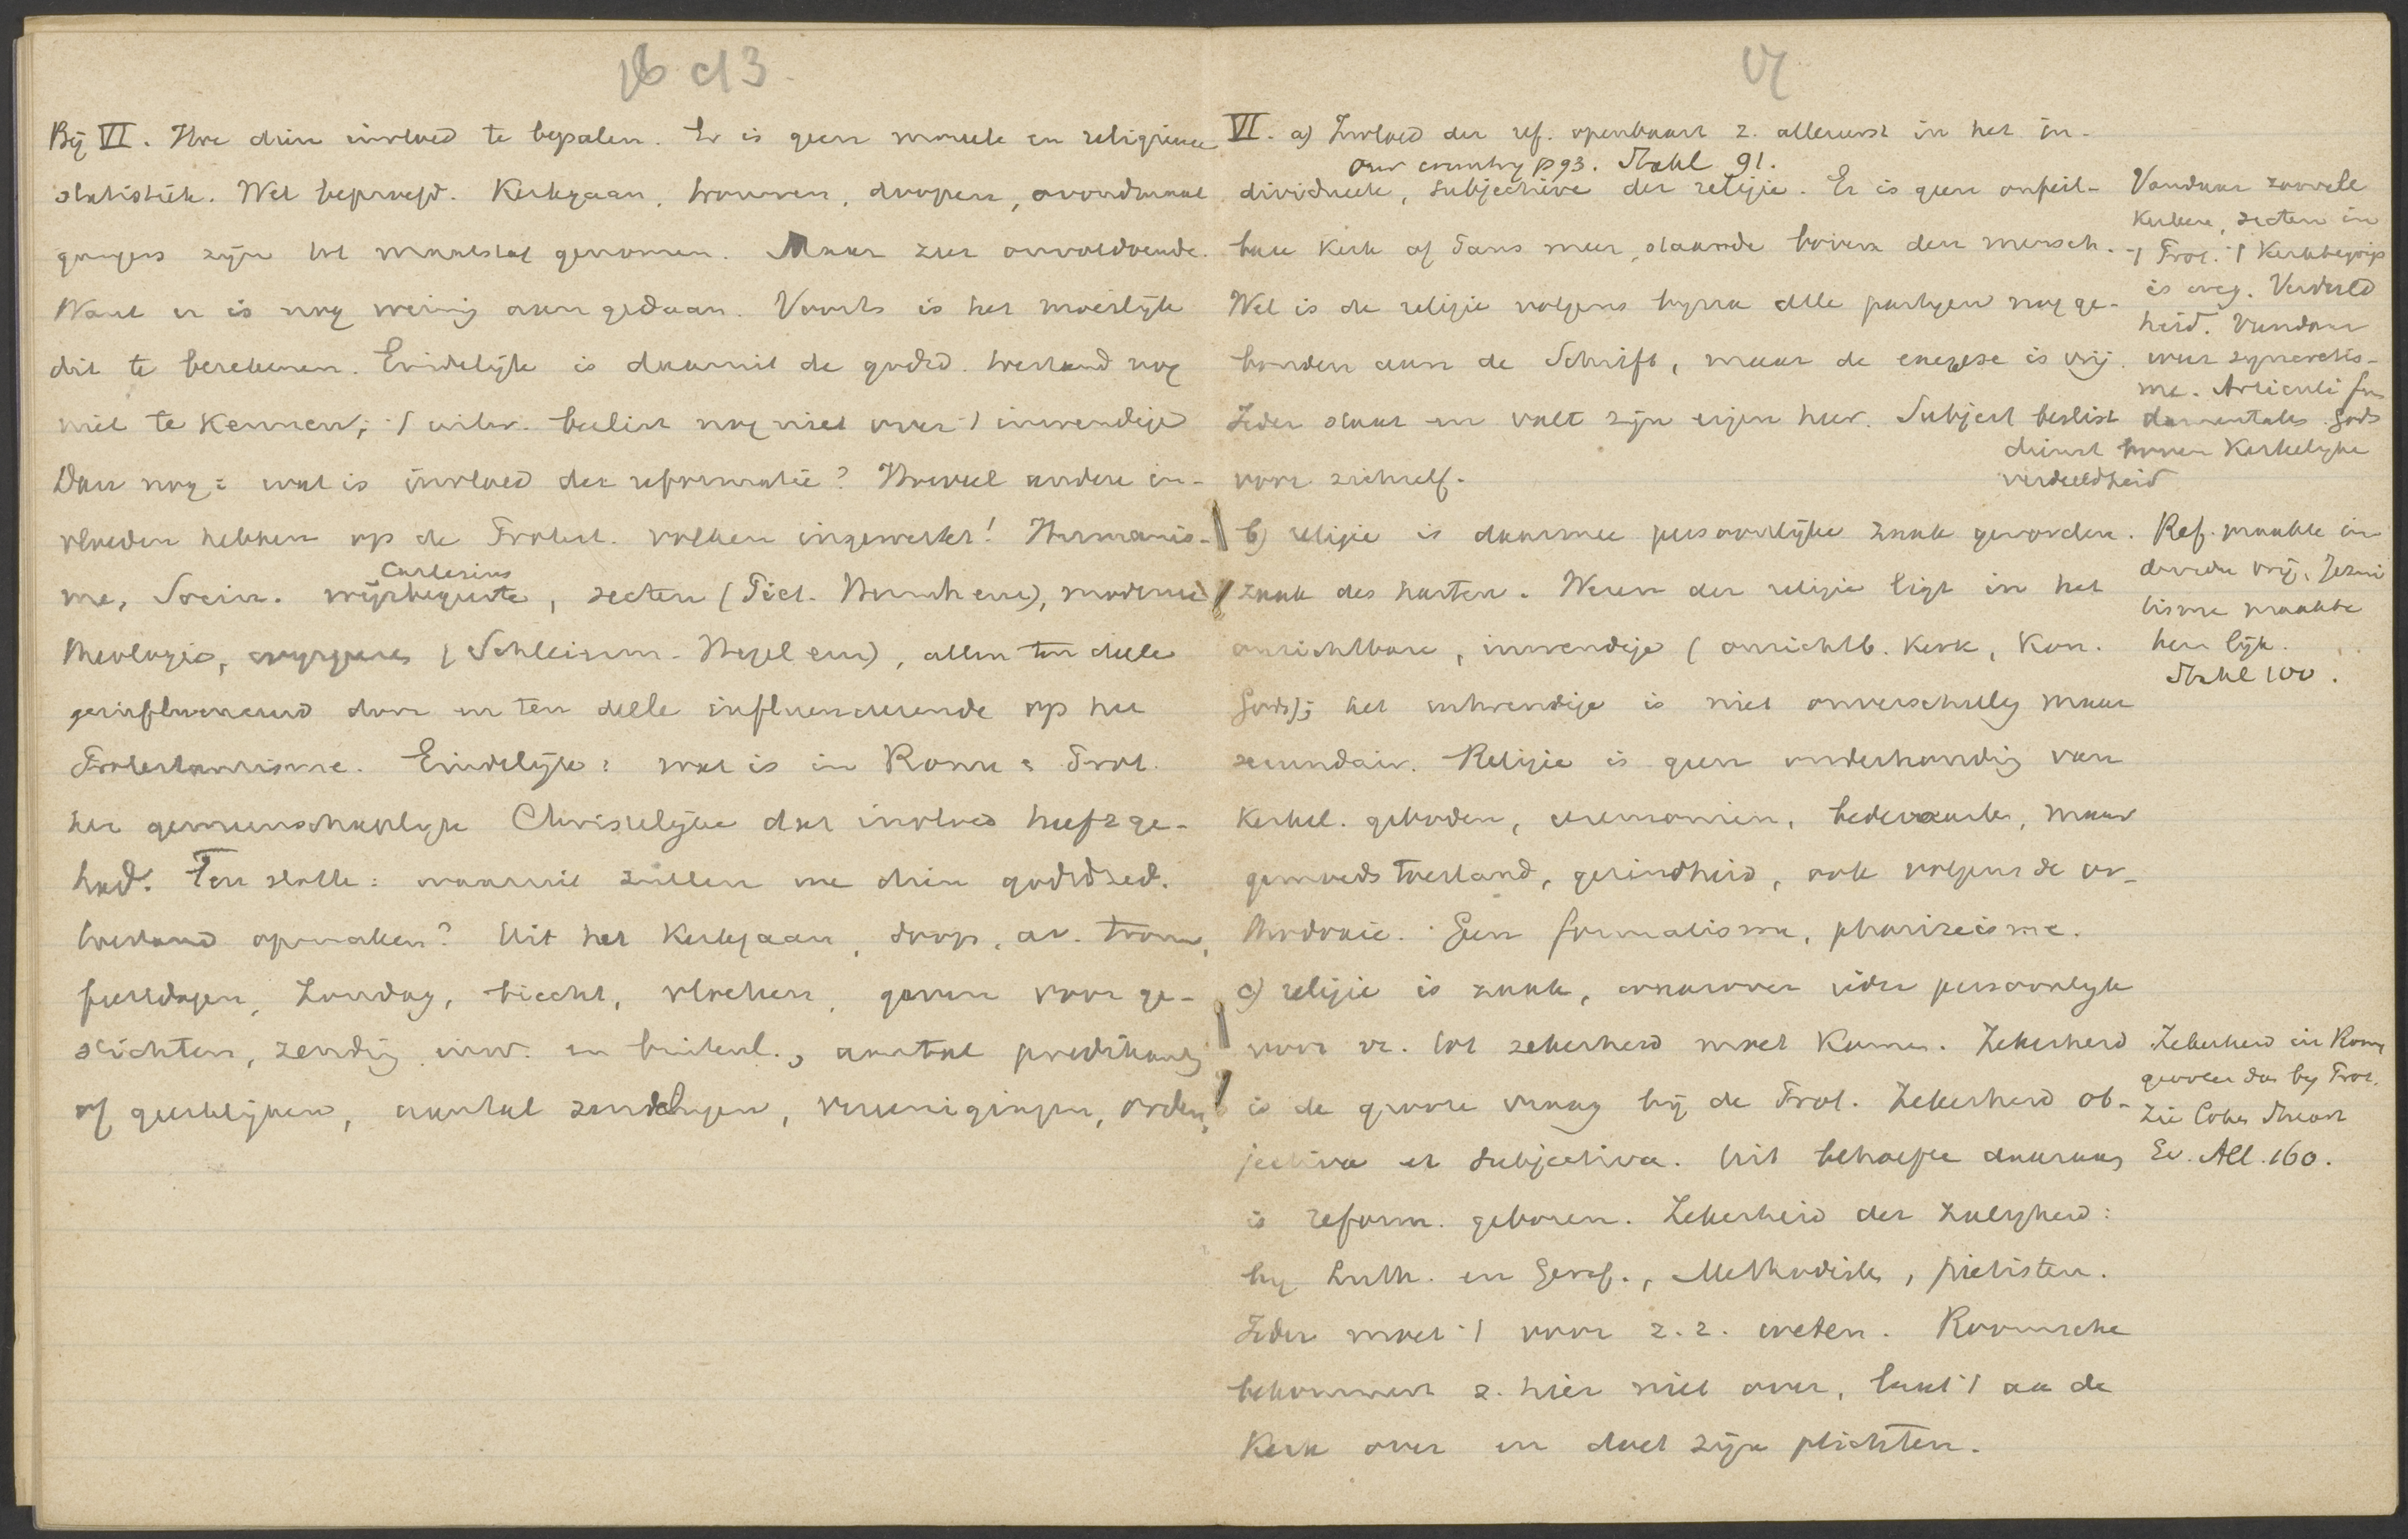 Bij VI. Hoe dien invloed te bepalen. Er is geen moreele en religieuse
statistiek. Wel beproefd. Kerkgaan, trouwen, doopen, avondmaal
gangers zijn tot maatstaf genomen. Maar zeer onvoldoende.
Want er is nog weinig aan gedaan. Voorts is het moeilijk
dit te berekenen. Eindelijk is daaruit de godsd. toestand nog
niet te kennen; 't uitw. beslist nog niet over 't inwendige
Dan nog: wat is invloed der reformatie? Hoeveel andere in-
vloeden hebben op de Protest. volken ingewerkt! Humanis-
Cartesius
me, Socin. wijsbegeerte, secten (Piet. Herrnh enz), moderne
theologie, (Schleierm. Hegel enz), allen ten deele
geinfluenceerd door en ten deele influenceerende op het
Protestantisme. Eindelijk: wat is in Rome & Prot.
het gemeenschappelijk Christelijke dat invloed heeft ge-
had. Ten slotte: waaruit zullen we dien godsdsed.
toestand opmaken? Uit het Kerkgaan, doop, av. trouw,
feestdagen, Zondag, biecht, vloeken, gaven voor ge-
stichten, zending inw. en buitenl., aantal predikant
of geestelijken, aantal zendelingen, vereenigingen, orden,
VI
VI. a) Invloed der ref. openbaart z. allereerst in het in-
Our country p 93. Stahl 91.
dividueele, subjectieve der religie. Er is geen onfeil-
bare Kerk of Paus meer, staande boven den mensch.
Wel is de religie volgens bijna alle partijen nog ge-
bonden aan de Schrift, maar de exegese is vrij.
Ieder staat en valt zijn eigen heer. Subject beslist
voor zichzelf.
Vandaar zoovele
Kerken, secten in
't Prot. 't Kerkbegrip
is weg. Verdeeld
heid. Vandaar
weer syncretis-
me. Articuli fun
damentales. Gods
dienst boven Kerkelijke
verdeeldheid
b) religie is daarmee persoonlijke zaak geworden.
zaak des harten. Wezen der religie ligt in het
onzichtbare, inwendige (onzichtb. Kerk, Kon.
Gods); het uitwendige is niet onverschillig maar
secundair. Religie is geen onderhouding van
Kerkel. geboden, ceremonien, bedevaarten, maar
gemoedstoestand, gezindheid, ook volgens de or-
thodoxie. Geen formalisme, pharizeisme.
Ref. maakte in
dividu vrij, Jezui
tisme maakte
hen lijk.
Stahl 100.
c) religie is zaak, waarover ieder persoonlijk
voor z. tot zekerheid moet komen. Zekerheid
is de groote vraag bij de Prot. Zekerheid ob-
jectiva et subjectiva. Uit behoefte daaraan
is reform. geboren. Zekerheid der zaligheid:
bij Luth. en Geref., Methodisten, pietisten.
Ieder moet 't voor z. z. weten. Roomsche
bekommert z. hier niet over, laat 't aan de
Kerk over en doet zijn plichten.
Zekerheid in Rome
grooter dan bij Prot.
Zie
Ev. All. 160.